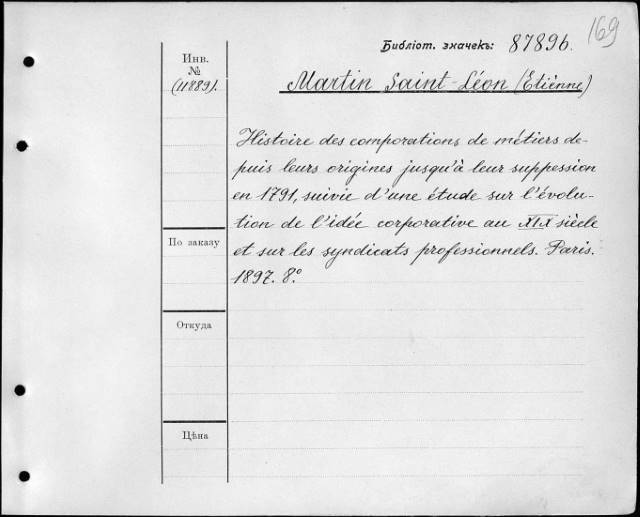 169
Библіот. значекъ: 8789б.
Инв.
№
(11889).
Martin Saint-Léon (Etiènne)
Histoire des comporations de métiers de-
puis leurs origines jusqu'à leur suppession
en 1791, suivie d'une étude sur l'évolu-
tion de l'idée corporative au XIX siècle
et sur les syndicats professionnels. Paris.
1897. 8.°
По заказу
Откуда
Цѣна